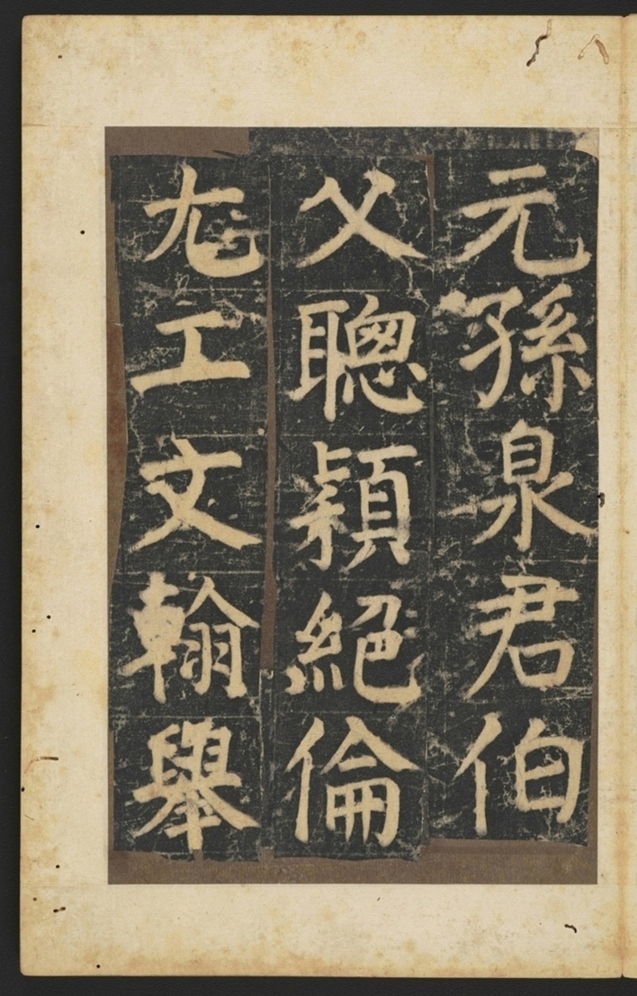 元孫泉君伯
父聰穎絕倫
尤工文翰舉